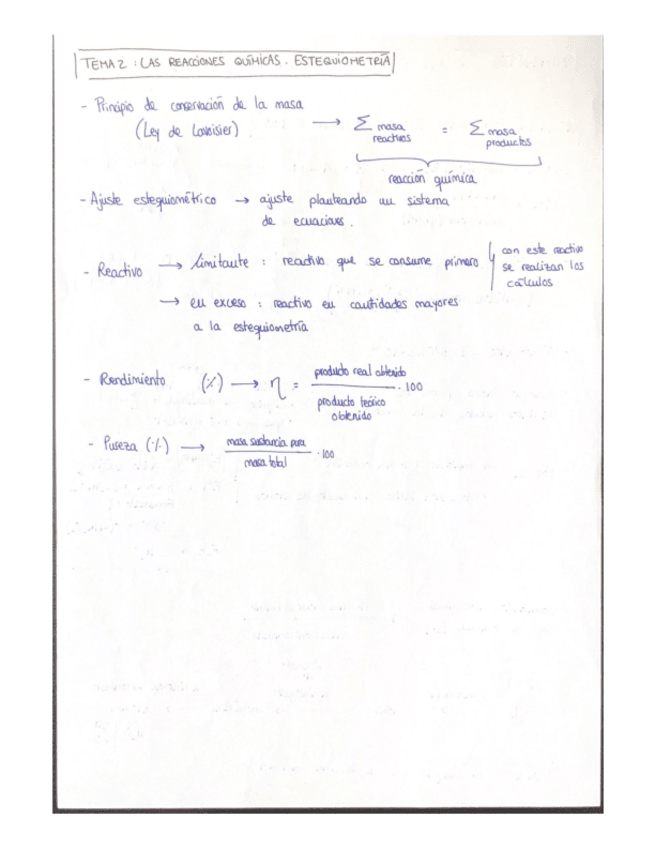 TEMA 2 : LAS REACCIONES QUÍMICAS. ESTEQUIOMETRÍA
- Principio de conservación de la masa
(Ley de Lavoisier) → Σ masa reactivos = Σ masa productos
reacción química
- Ajuste estequiométrico → ajuste planteando un sistema
de ecuaciones.
- Reactivo → limitante : reactivo que se consume primero
con este reactivo
se realizan los
cálculos
→ en exceso : reactivo en cantidades mayores
a la estequiometría
- Rendimiento (%) → η = producto real obtenido / producto teórico obtenido · 100
- Pureza (%) → masa sustancia pura / masa total · 100